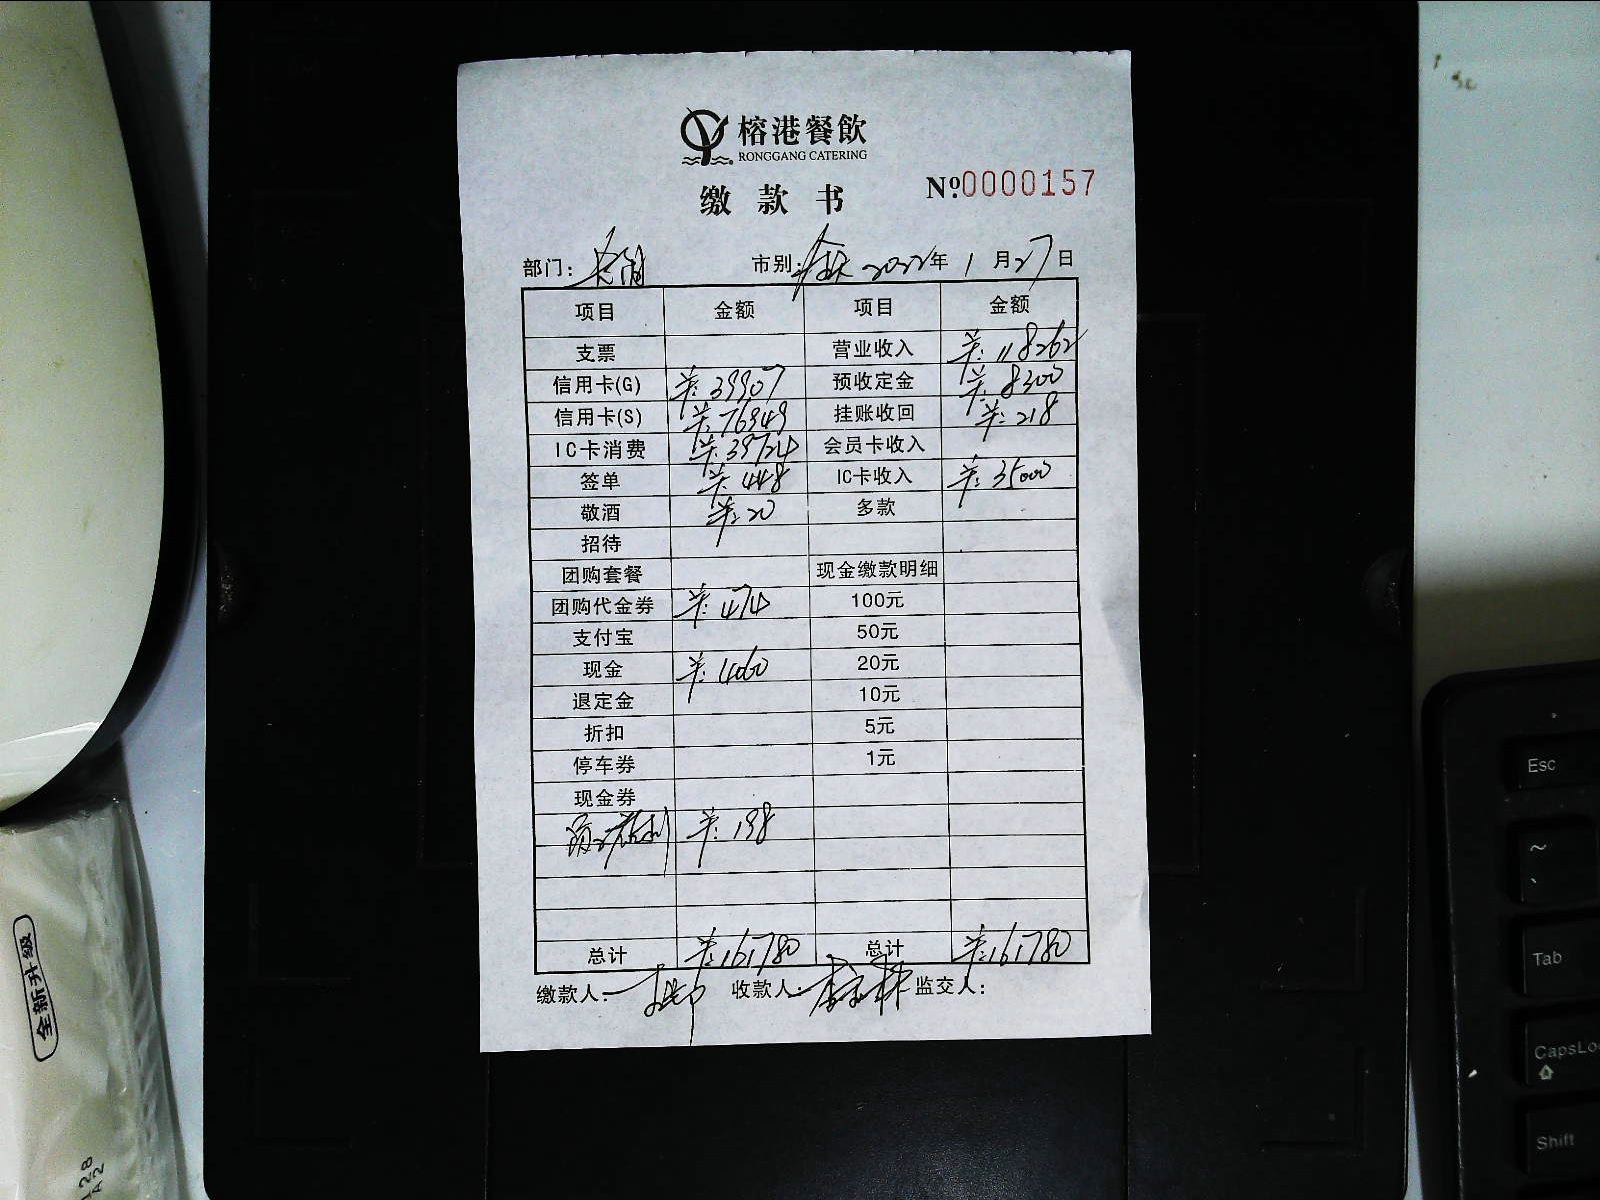 榕港餐飲
RONGGANG CATERING
缴款书 Nº.0000157
部门: 市别: 2022年 1月27日
项目 金额 项目 金额
支票 营业收入 ¥:118262
信用卡(G) ¥:39907 预收定金 ¥:8300
信用卡(S) ¥:76949 挂账收回 ¥:218
IC卡消费 ¥:39724 会员卡收入
签单 ¥:448 IC卡收入 ¥:35000
敬酒 ¥:20 多款
招待
团购套餐 现金缴款明细
团购代金券 ¥:474 100元
支付宝 50元
现金 ¥:4060 20元
退定金 10元
折扣 5元
停车券 1元
现金券
¥:198
总计 ¥:161780 总计 ¥:161780
缴款人: 收款人: 监交人:
全新升级
Esc
~
Tab
CapsLo
Shift